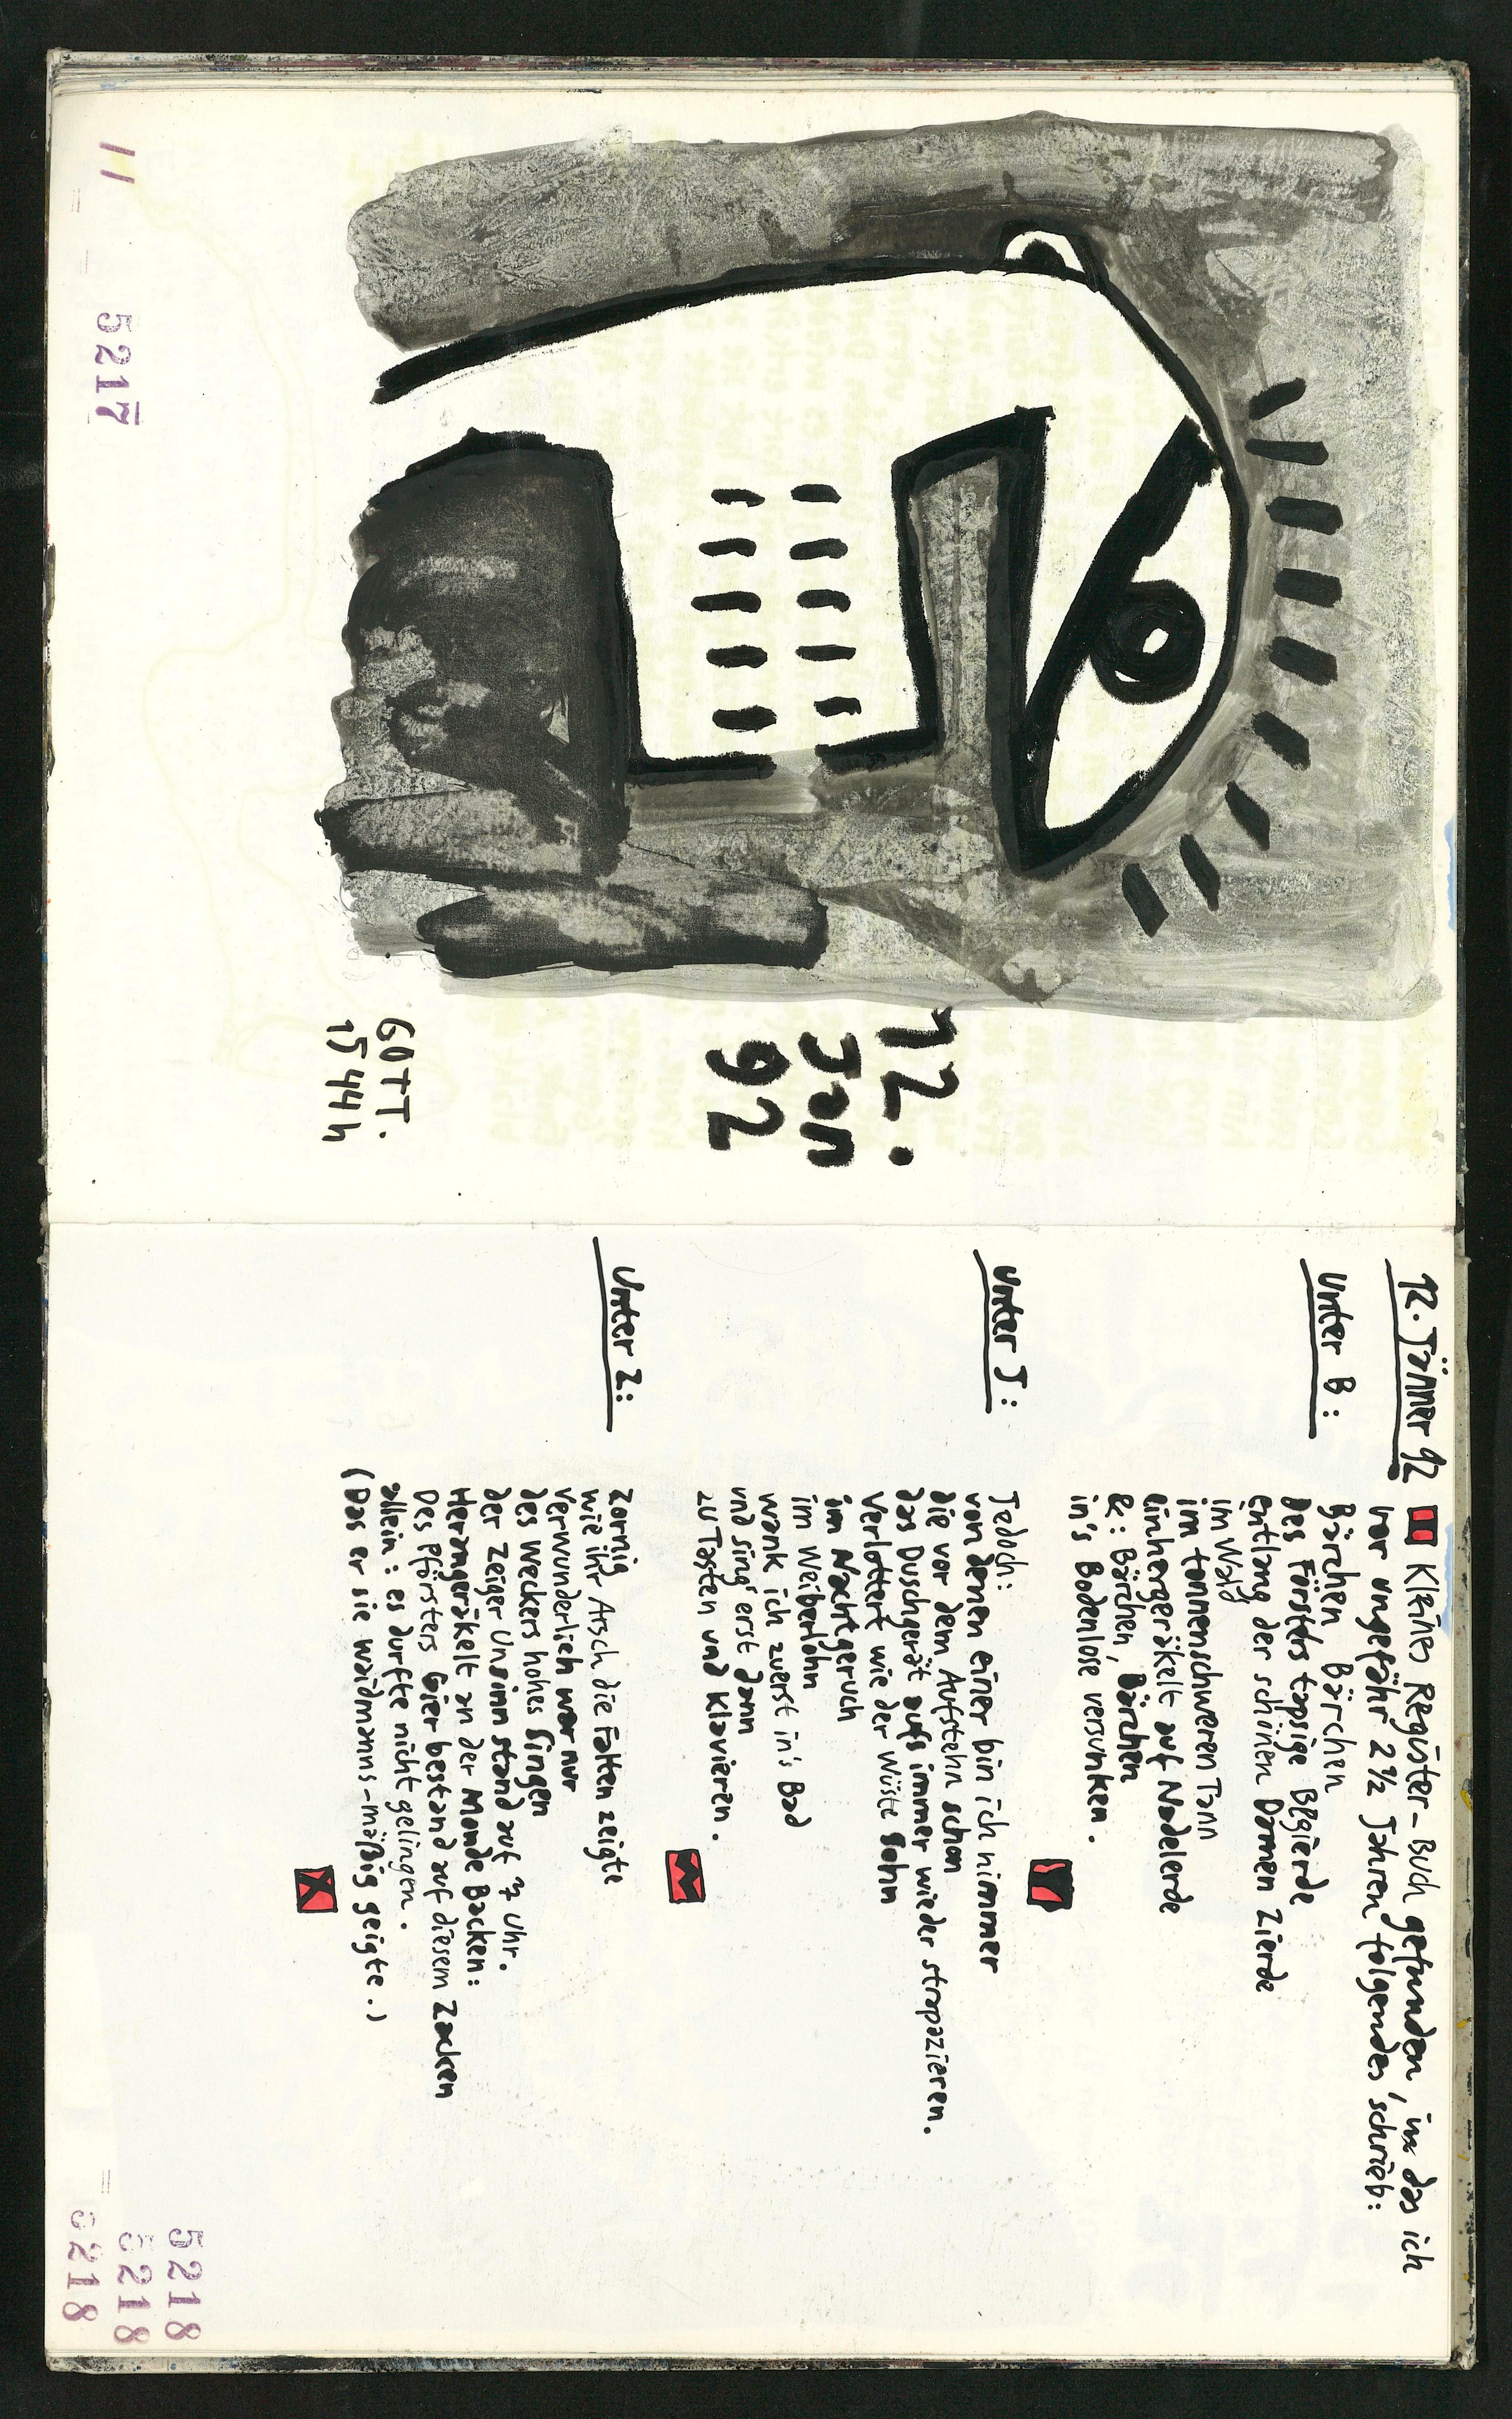 12.
Jan
92
GOTT.
1544h
5217
12. Jänner 92
Kleines Register-Buch gefunden, in das ich
vor ungefähr 2½ Jahren folgendes schrieb:
Unter B:
Bärchen Bärchen
Des Försters tapsige Begierde
Entlang der schönen Damen Zierde
Im Wald
im tannenschweren Tann
Einhergeräkelt auf Nadelerde
&: Bärchen, Bärchen
in's Bodenlose versunken.
Unter J:
Jedoch:
von denen einer bin ich nimmer
die vor dem Aufstehn schon
das Duschgerät aufs immer wieder strapazieren.
Verlottert wie der Wüste Sohn
im Nachtgeruch
im Weiberlohn
wank ich zuerst in's Bad
und sing erst dann
zu Tasten und Klavieren.
Unter Z:
Zornig
wie ihr Arsch die Falten zeigte
verwunderlich war nur
des Weckers hohes Singen
der Zeiger Unsinn stand auf 7 Uhr.
Herangeräkelt an der Monde Backen:
Des Pförsters Gier bestand auf diesem Zacken
allein: es durfte nicht gelingen.
(Das er sie waidmanns-mäßig geigte.)
5218
5218
5218